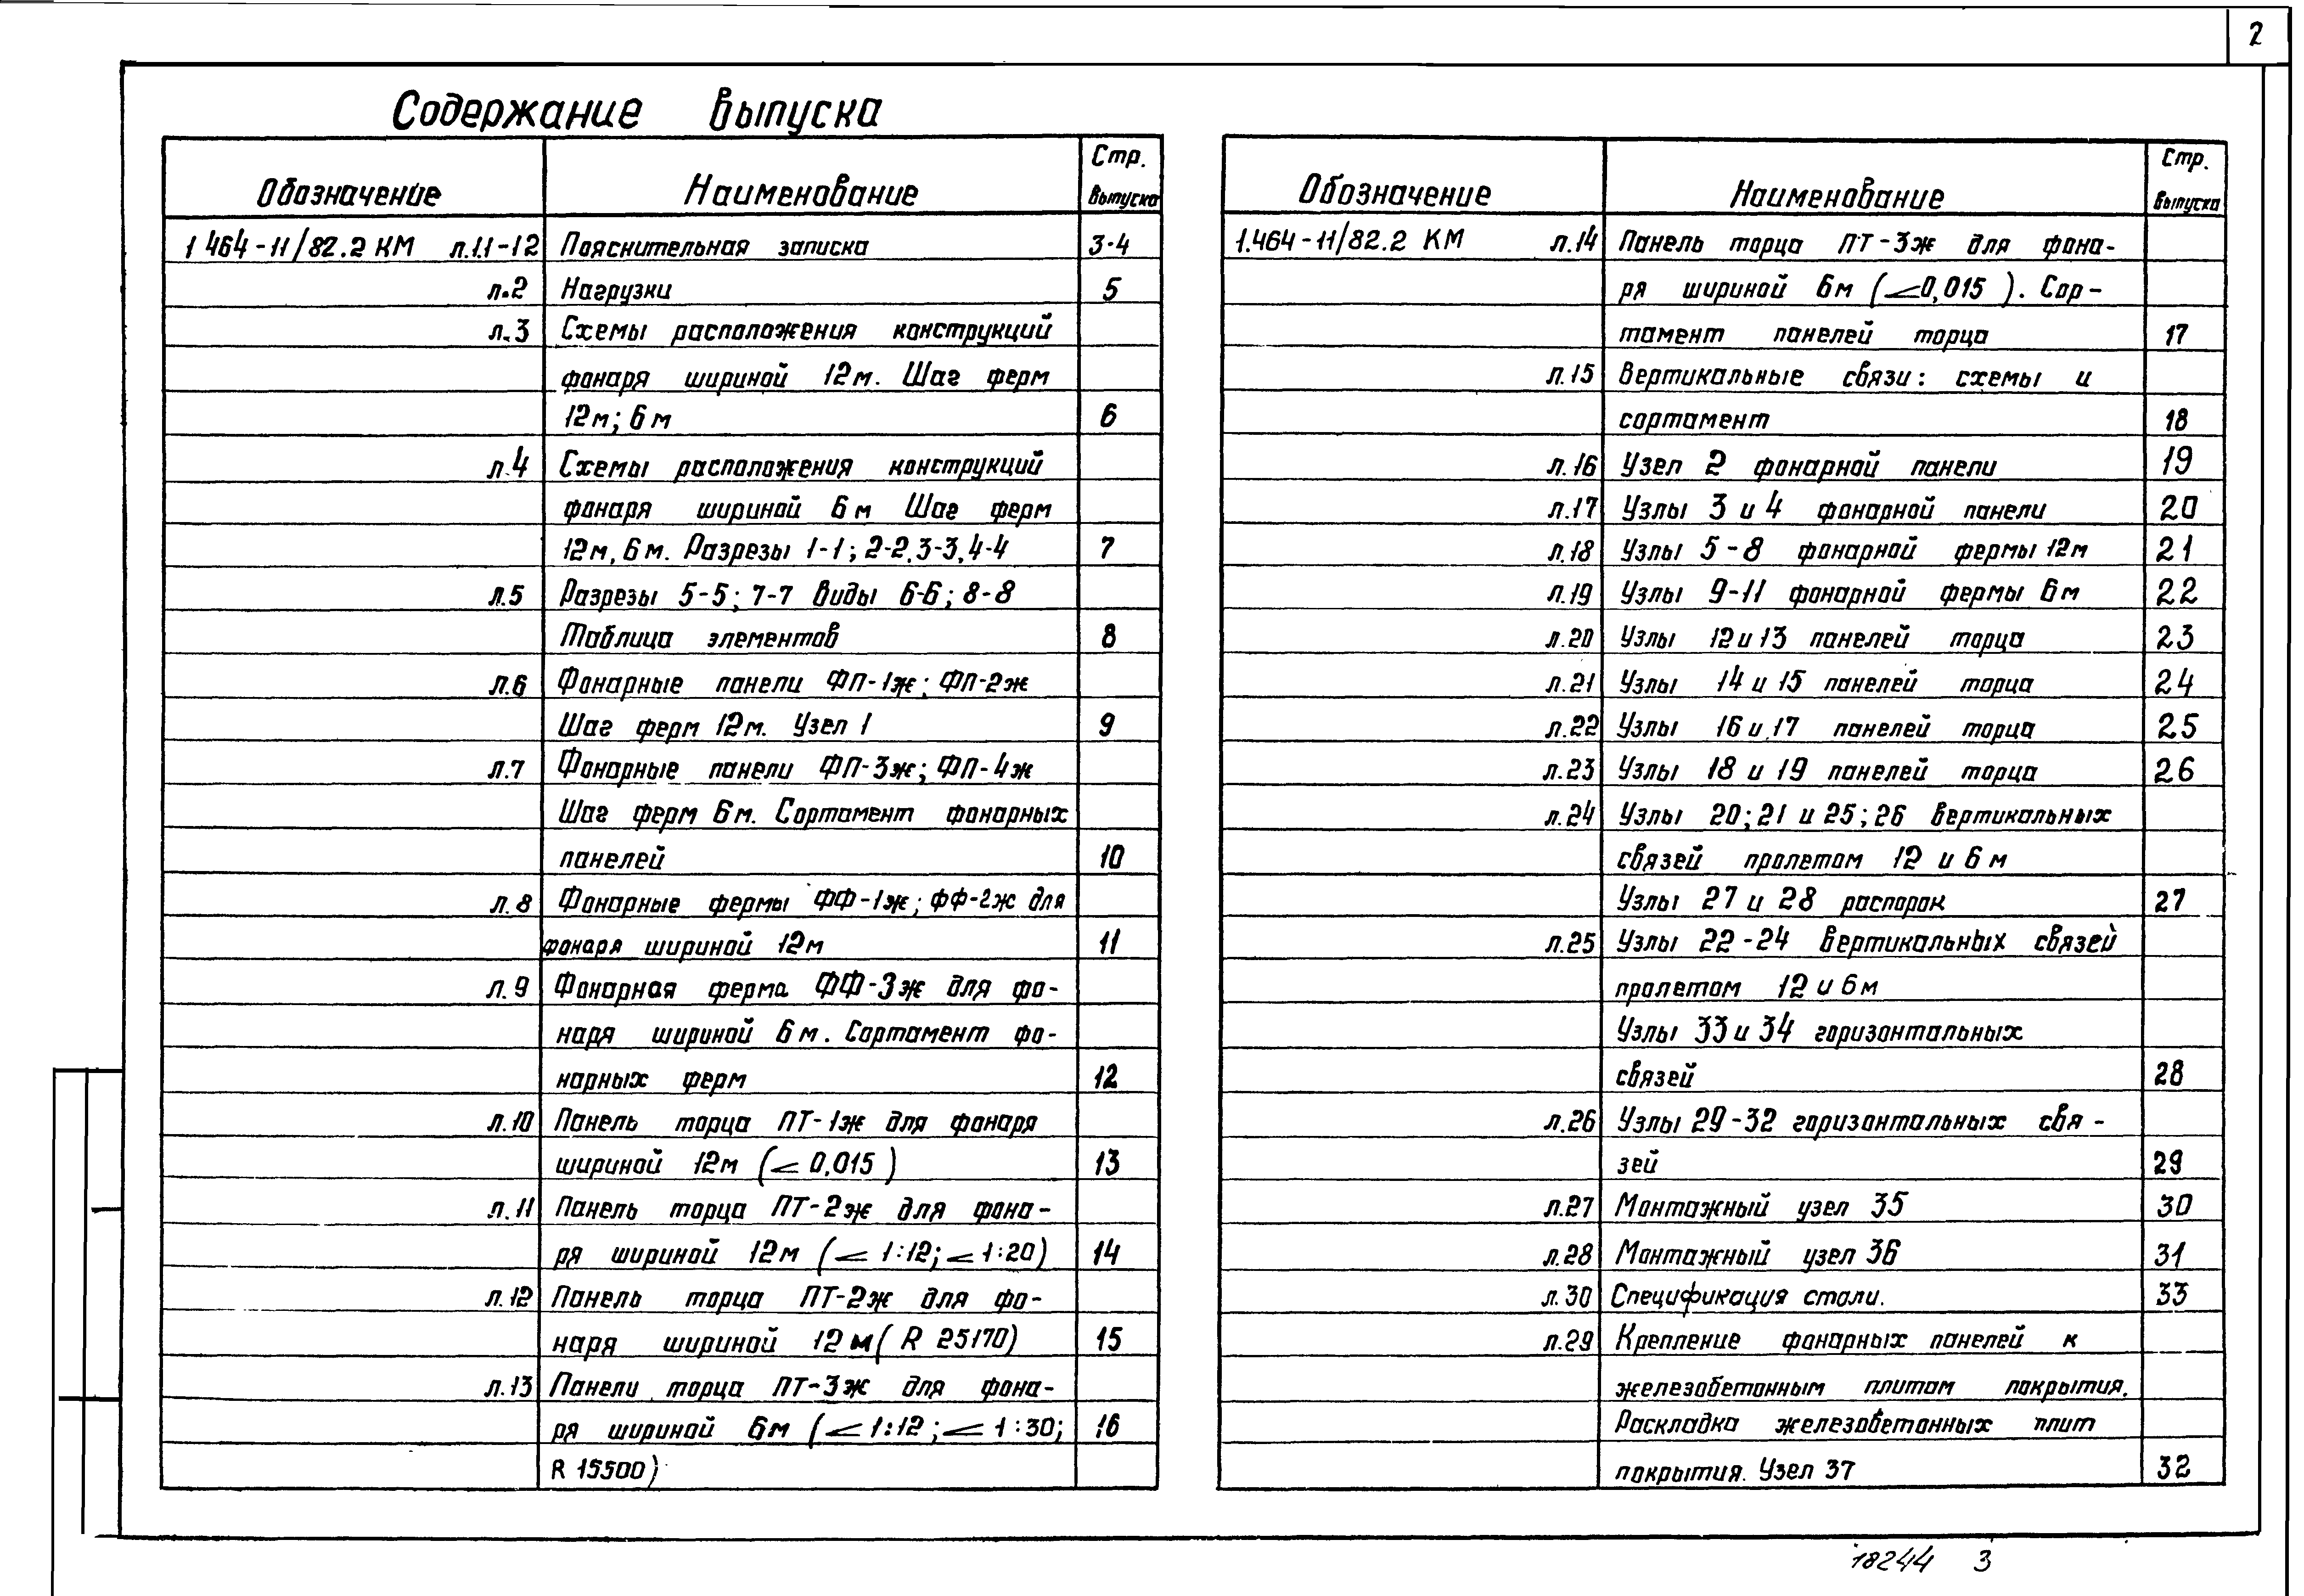 2
Содержание выпуска
Обозначение Наименование Стр. выпуска
1.464-11/82.2 КМ л.1.1-1.2 Пояснительная записка 3-4
л.2 Нагрузки 5
л.3 Схемы расположения конструкций
фонаря шириной 12м. Шаг ферм
12м; 6м 6
л.4 Схемы расположения конструкций
фонаря шириной 6м Шаг ферм
12м, 6м. Разрезы 1-1; 2-2, 3-3, 4-4 7
л.5 Разрезы 5-5; 7-7 Виды 6-6; 8-8
Таблица элементов 8
л.6 Фонарные панели ФП-1ж; ФП-2ж
Шаг ферм 12м. Узел 1 9
л.7 Фонарные панели ФП-3ж; ФП-4ж
Шаг ферм 6м. Сортамент фонарных
панелей 10
л.8 Фонарные фермы ФФ-1ж; ФФ-2ж для
фонаря шириной 12м 11
л.9 Фонарная ферма ФФ-3ж для фо-
наря шириной 6м. Сортамент фо-
нарных ферм 12
л.10 Панель торца ПТ-1ж для фонаря
шириной 12м (⦣ 0,015) 13
л.11 Панель торца ПТ-2ж для фона-
ря шириной 12м (⦣ 1:12; ⦣ 1:20) 14
л.12 Панель торца ПТ-2ж для фо-
наря шириной 12м (R 25170) 15
л.13 Панели торца ПТ-3ж для фона-
ря шириной 6м (⦣ 1:12; ⦣ 1:30; 16
R 15500)
Обозначение Наименование Стр. выпуска
1.464-11/82.2 КМ л.14 Панель торца ПТ-3ж для фона-
ря шириной 6м (⦣ 0,015). Сор-
тамент панелей торца 17
л.15 Вертикальные связи: схемы и
сортамент 18
л.16 Узел 2 фонарной панели 19
л.17 Узлы 3 и 4 фонарной панели 20
л.18 Узлы 5-8 фонарной фермы 12м 21
л.19 Узлы 9-11 фонарной фермы 6м 22
л.20 Узлы 12 и 13 панелей торца 23
л.21 Узлы 14 и 15 панелей торца 24
л.22 Узлы 16 и 17 панелей торца 25
л.23 Узлы 18 и 19 панелей торца 26
л.24 Узлы 20; 21 и 25; 26 вертикальных
связей пролетом 12 и 6м
Узлы 27 и 28 распорок 27
л.25 Узлы 22-24 вертикальных связей
пролетом 12 и 6м
Узлы 33 и 34 горизонтальных
связей 28
л.26 Узлы 29-32 горизонтальных свя-
зей 29
л.27 Монтажный узел 35 30
л.28 Монтажный узел 36 31
л.30 Спецификация стали. 33
л.29 Крепление фонарных панелей к
железобетонным плитам покрытия.
Раскладка железобетонных плит
покрытия. Узел 37 32
18244 3